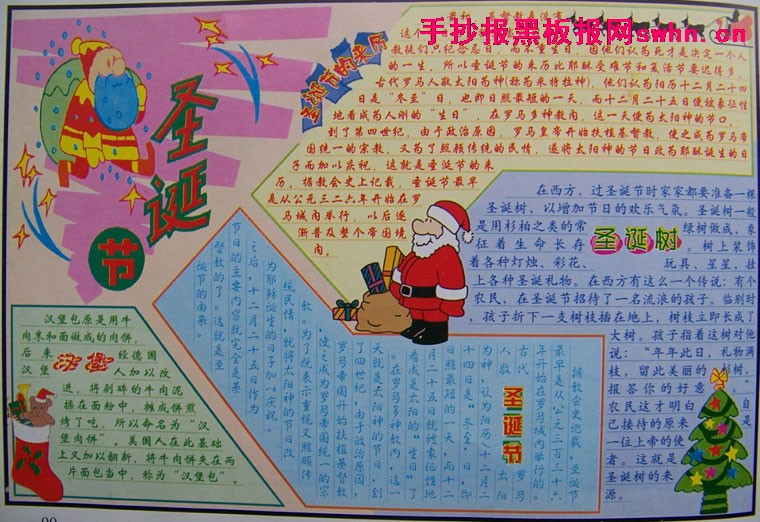 手抄报黑板报网swhn.cn
圣诞节
圣诞节的来历
教徒们只纪念忌日，而不重生日，因他们认为死才是决定一个人
的一生，所以圣诞节的来历比耶酥受难节和复活节要迟得多。
古代罗马人敬太阳为神(称为米特拉神)，他们认为阳历十二月二十四
日是“冬至”日，也即日照最短的一天，而十二月二十五日便被象征性
地看成为人刚的“生日”，在罗马多种教内，这一天便为太阳神的节口，
到了第四世纪，由于政治原因，罗马皇帝开始扶植基督教，使之成为罗马帝
国统一的宗教，又为了照顾传统的民情，遂将太阳神的节日改为耶酥诞生的日
子而加以庆祝，这就是圣诞节的来
历。据教会史上记载，圣诞节最早
是从公元三二六年开始在罗
马城内举行，以后逐
渐普及整个帝国境
内。
在西方，过圣诞节时家家都要准备一棵
圣诞树，以增加节日的欢乐气氛。圣诞树一般
是用杉柏之类的常
绿树做成，象
征着生命长存
圣诞树
。树上装饰
着各种灯烛、彩花、
玩具、星星，挂
上各种圣诞礼物。在西方有这么一个传说：有个
农民，在圣诞节招待了一名流浪的孩子，临别时
，孩子折下一支树枝插在地上，树枝立即长成了
大树。孩子指着这树对他
说：“年年此日，礼物满
枝，留此美丽的
树，
报答你的好意。”
农民这才明白
自
己接待的原来
是
一位上帝的使
者。这就是
圣诞树的来
源。
汉堡包原是用牛
肉末和面做成的肉饼，
后来
汉堡
经德国
汉堡
人加以改
进，将剁碎的牛肉泥
揉在面粉中，摊成饼煎
烤了吃，所以命名为“汉
堡肉饼”。美国人在此基础
上又加以翻新，将牛肉饼夹在两
片面包当中，称为“汉堡包”。
圣诞节
据教会史记载，圣诞节
最早是从公元三百三十六
年开始在罗马城内举行的。
古代
罗马
人敬
太阳
为神，认为阳历十二月二
十四日是“冬至”日，即
日照最短的一天，而十二
月二十五日就被象征性地
看成是太阳的“生日”了
。在罗马多种教内，这一
天就是太阳神的节日，到
了四世纪，由于政治原因，
罗马帝国开始扶植基督教
，使之成为罗马帝国统一的宗
教。为了既表示重视又照顾传
统民情，就将太阳神的节日改
为耶酥诞生的日子加以庆祝
之后，十二月二十五日作为
节日的主要内容就完全是基
督教的了。这就是圣
诞节的由来。